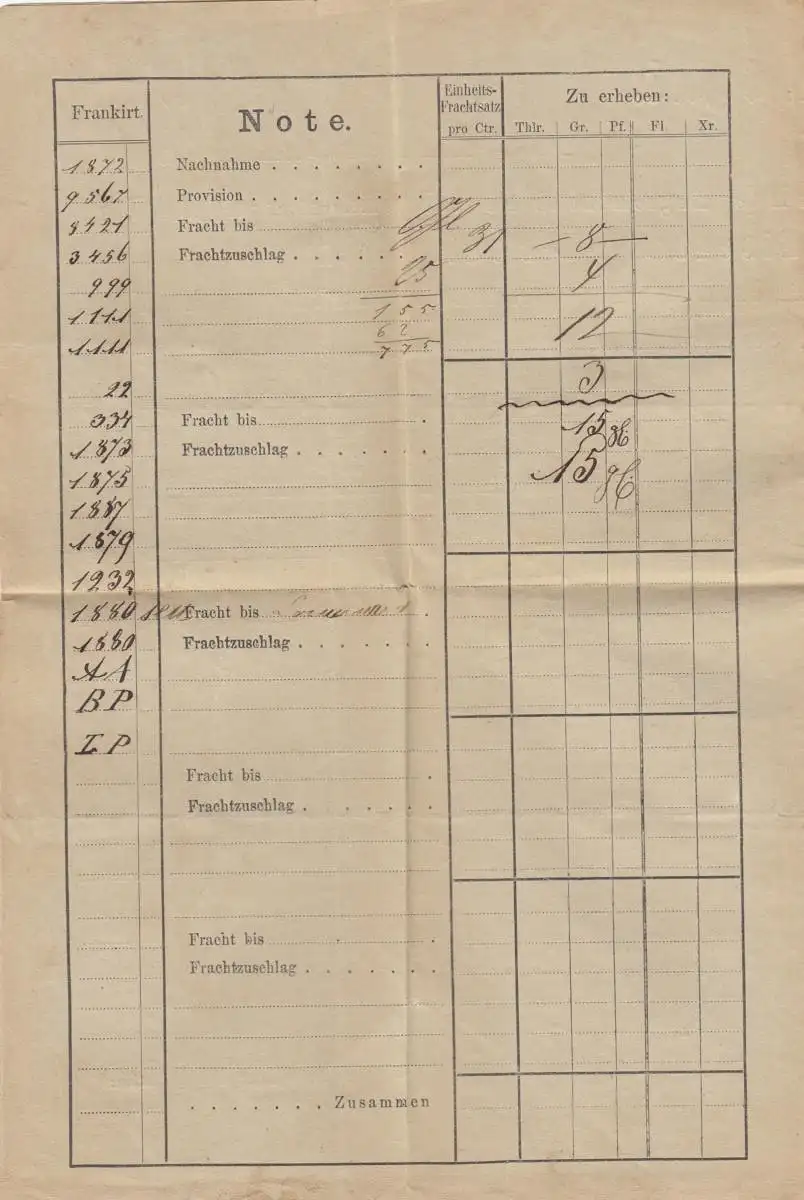 Frankirt. Note. Einheits-Frachtsatz pro Ctr. Zu erheben:
Thlr. Gr. Pf. Fl Xr.
1872 Nachnahme . . . . . . . .
9567 Provision . . . . . . . . .
8421 Fracht bis 31 — 8 —
3456 Frachtzuschlag . . . . . .
999 25 4
1111 155 12
62
1111 775
22 3
334 Fracht bis .
15
1873 Frachtzuschlag . . . . . .
15
1875
1887
1879
1232
1880 Fracht bis .
1880 Frachtzuschlag . . . . . .
AA
BP
ZP
Fracht bis .
Frachtzuschlag . . . . .
Fracht bis .
Frachtzuschlag . . . . . .
. . . . . . . Zusammen